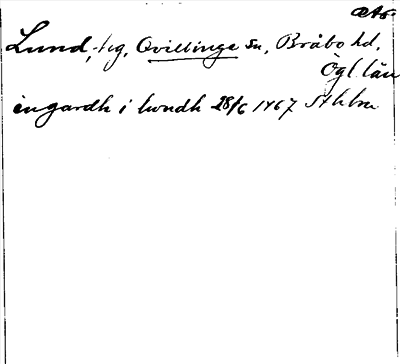 Lund, -tg, Qvillinge sn, Bråbo hd,
Ögl. län
in gardh i lwndh 28/6 1467 Sthbr